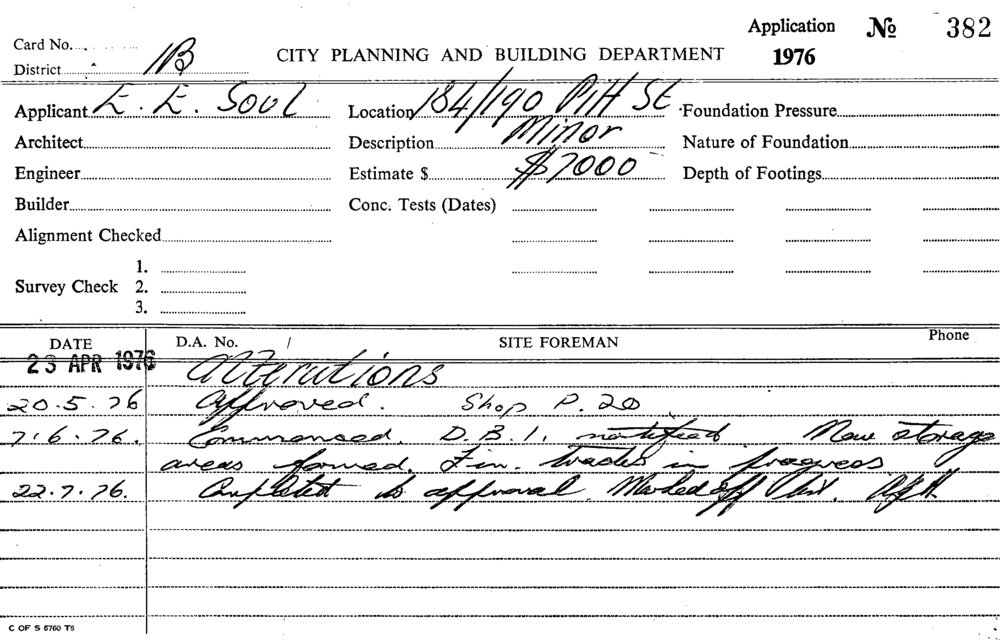 Application No 382
Card No.
CITY PLANNING AND BUILDING DEPARTMENT 1976
District 1B
Applicant E. E. Soul Location 184/190 Pitt St Foundation Pressure
Architect Description Minor Nature of Foundation
Engineer Estimate $ $7000 Depth of Footings
Builder Conc. Tests (Dates)
Alignment Checked
1.
Survey Check 2.
3.
DATE D.A. No. / SITE FOREMAN Phone
23 APR 1976 Alterations
20.5.76 Approved. Shop P. 20
7.6.76. Commenced. D.B.I. notified New storage
areas formed. Fin. trades in progress
22.7.76. Completed to approval. Marked off list.
C OF S 6760 T6